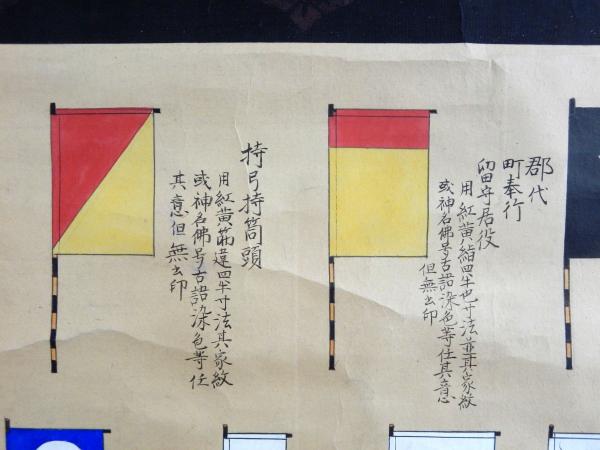 郡代
町奉行
留守居役
用紅黄〆四半也寸法并其家紋
或神名佛号古語染色等任其意
但無出印
持弓持筒頭
用紅黄筋違四半寸法其家紋
或神名佛号古語染色等任
其意但無出印